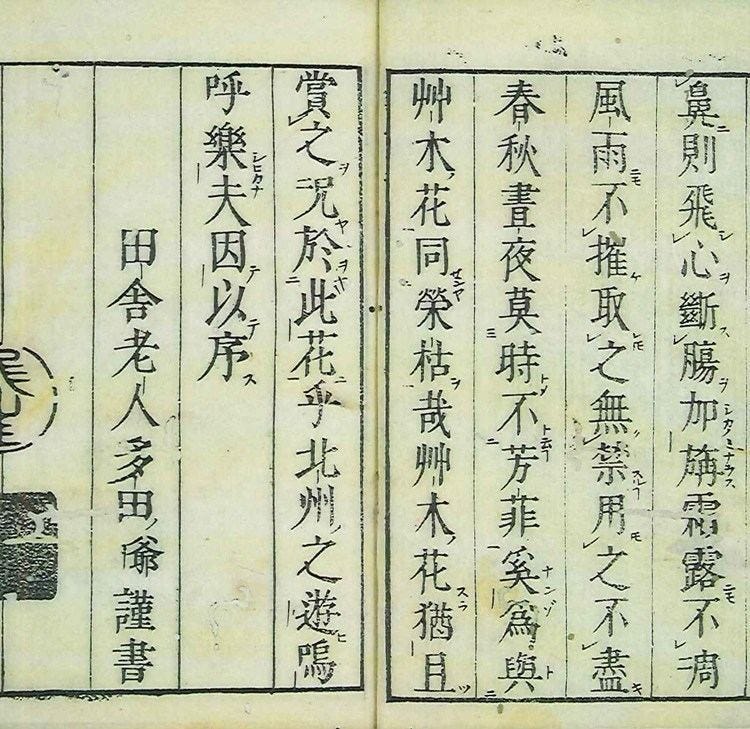 鼻則飛心斷膓加旃霜露不凋
風雨不摧取之無禁用之不盡
春秋晝夜莫時不芳菲奚爲與
艸木花同榮枯哉艸木花猶且
賞之况於此花乎北州之遊嗚
呼樂夫因以序
田舍老人多田爺謹書